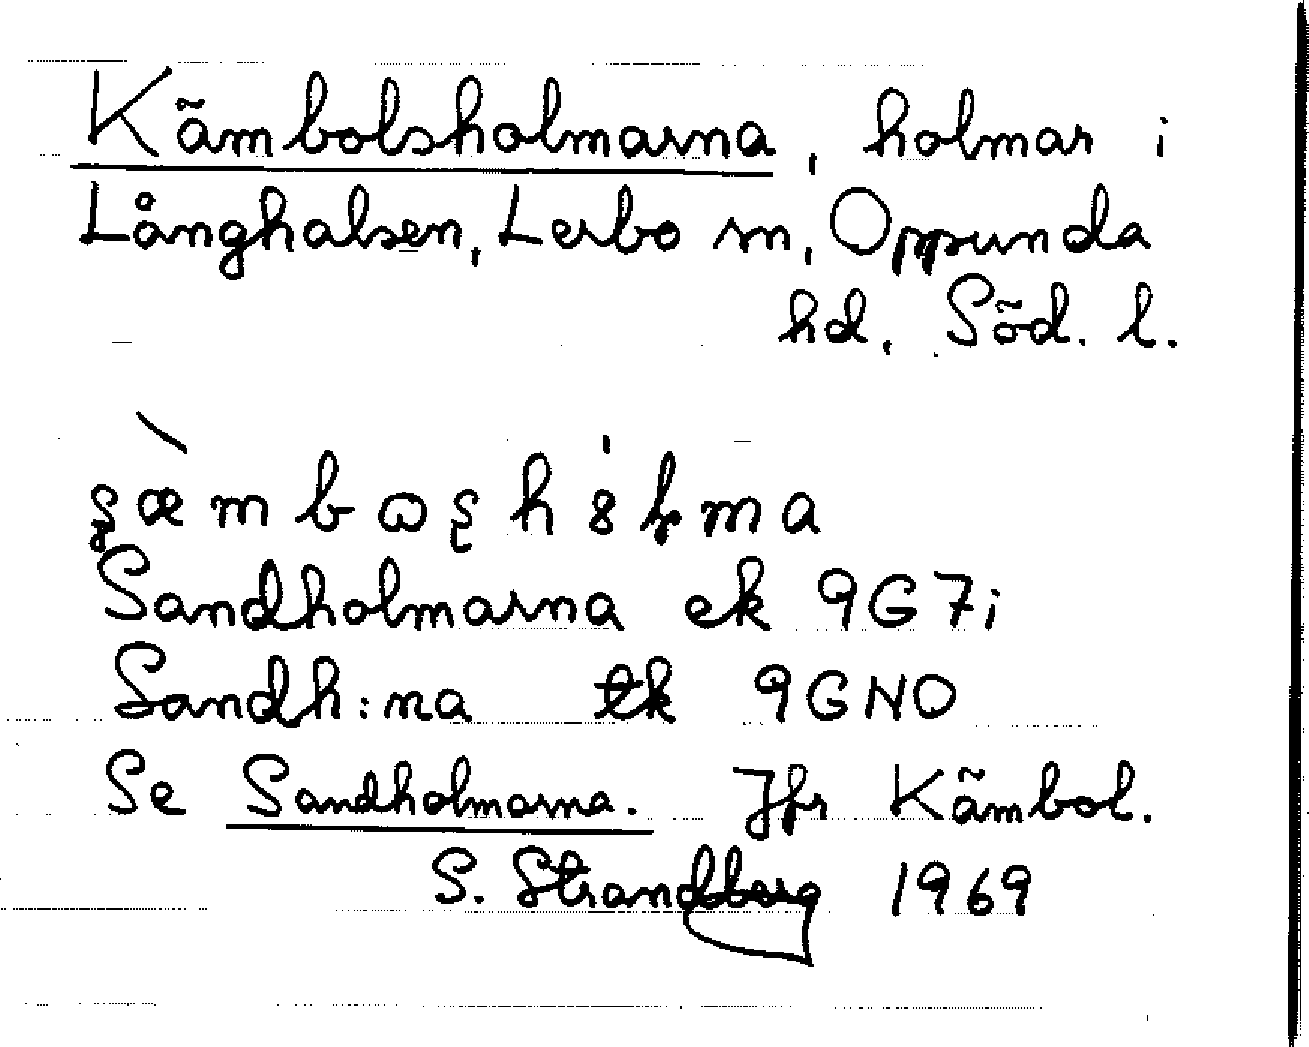 Kämbolsholmarna, holmar i
Långhalsen, Lerbo sn, Oppunda
hd, Söd. l.
Sandholmarna ek 9G7i
Sandh:na tk 9GNO
Se Sandholmarna. Jfr Kämbol.
S. Strandberg 1969